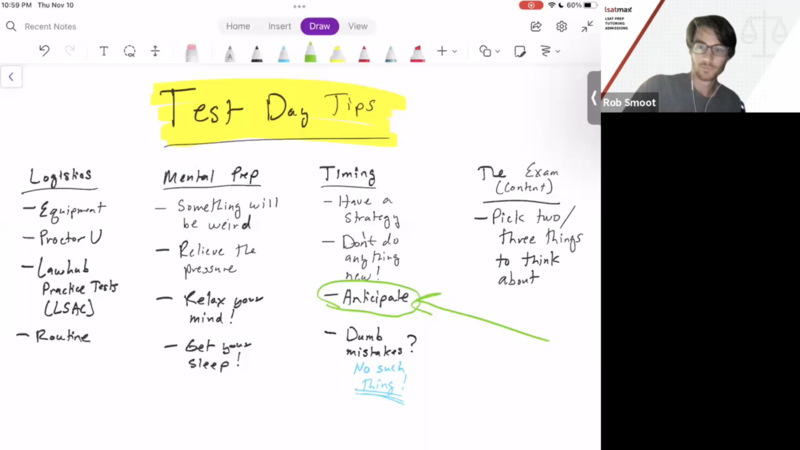 10:59 PM Thu Nov 10
60%
Recent Notes
Test Day
Home
Insert
Draw
View
lsatmax
LSAT PREP
TUTORING
ADMISSIONS
Rob Smoot
Test Day Tips
Logistics
– Equipment
– Proctor U
– Lawhub
Practice Tests
(LSAC)
– Routine
Mental Prep
– Something will
be weird
– Relieve the
pressure
– Relax your
mind!
– Get your
sleep!
Timing
– Have a
strategy
– Don't do
anything
new!
– Anticipate
– Dumb
mistakes?
No such
thing!
The Exam
(Content)
– Pick two/
three things
to think
about